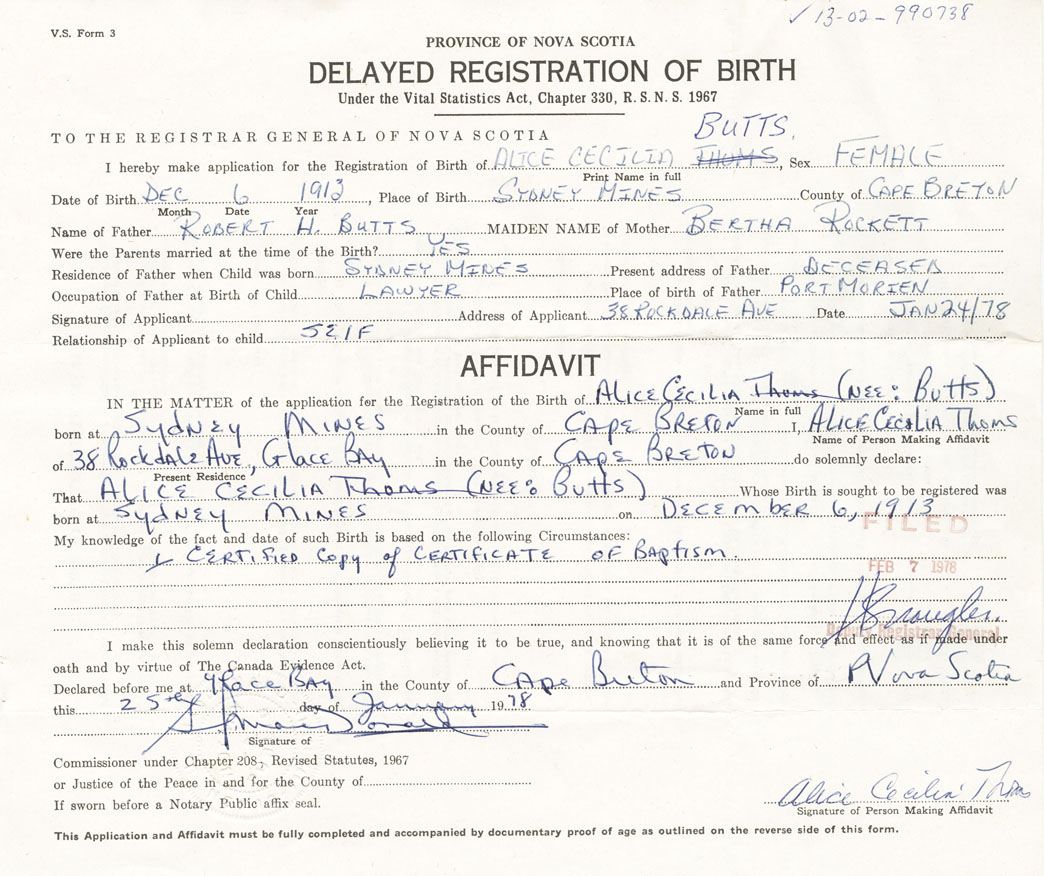 ✓ 13-02-990738
V.S. Form 3
PROVINCE OF NOVA SCOTIA
DELAYED REGISTRATION OF BIRTH
Under the Vital Statistics Act, Chapter 330, R.S.N.S. 1967
TO THE REGISTRAR GENERAL OF NOVA SCOTIA BUTTS,
I hereby make application for the Registration of Birth of ALICE CECILIA THOMS, Sex FEMALE
Print Name in full
Date of Birth DEC 6 1913, Place of Birth SYDNEY MINES County of CAPE BRETON
Month Date Year
Name of Father ROBERT H. BUTTS, MAIDEN NAME of Mother BERTHA ROCKETT
Were the Parents married at the time of the Birth? YES
Residence of Father when Child was born SYDNEY MINES Present address of Father DECEASED
Occupation of Father at Birth of Child LAWYER Place of birth of Father PORT MORIEN
Signature of Applicant Address of Applicant 38 ROCKDALE AVE Date JAN 24/78
Relationship of Applicant to child SELF
AFFIDAVIT
IN THE MATTER of the application for the Registration of the Birth of ALICE CECILIA Thoms (NEE: Butts)
Name in full
born at Sydney MINES in the County of CAPE BRETON I, ALICE CECILIA Thoms
Name of Person Making Affidavit
of 38 Rockdale Ave, Glace Bay in the County of CAPE BRETON do solemnly declare:
Present Residence
That ALICE CECILIA Thoms (NEE: Butts) Whose Birth is sought to be registered was
born at Sydney MINES on DECEMBER 6, 1913
FILED
My knowledge of the fact and date of such Birth is based on the following Circumstances:
1 CERTIFIED Copy of CERTIFICATE OF BAPTISM.
FEB 7 1978
Deputy Registrar General
I make this solemn declaration conscientiously believing it to be true, and knowing that it is of the same force and effect as if made under
oath and by virtue of The Canada Evidence Act.
Declared before me at Glace BAY in the County of Cape Breton and Province of Nova Scotia
this 25th day of January 1978
Signature of
Commissioner under Chapter 208, Revised Statutes, 1967
or Justice of the Peace in and for the County of
If sworn before a Notary Public affix seal.
Alice Cecilia Thoms
Signature of Person Making Affidavit
This Application and Affidavit must be fully completed and accompanied by documentary proof of age as outlined on the reverse side of this form.